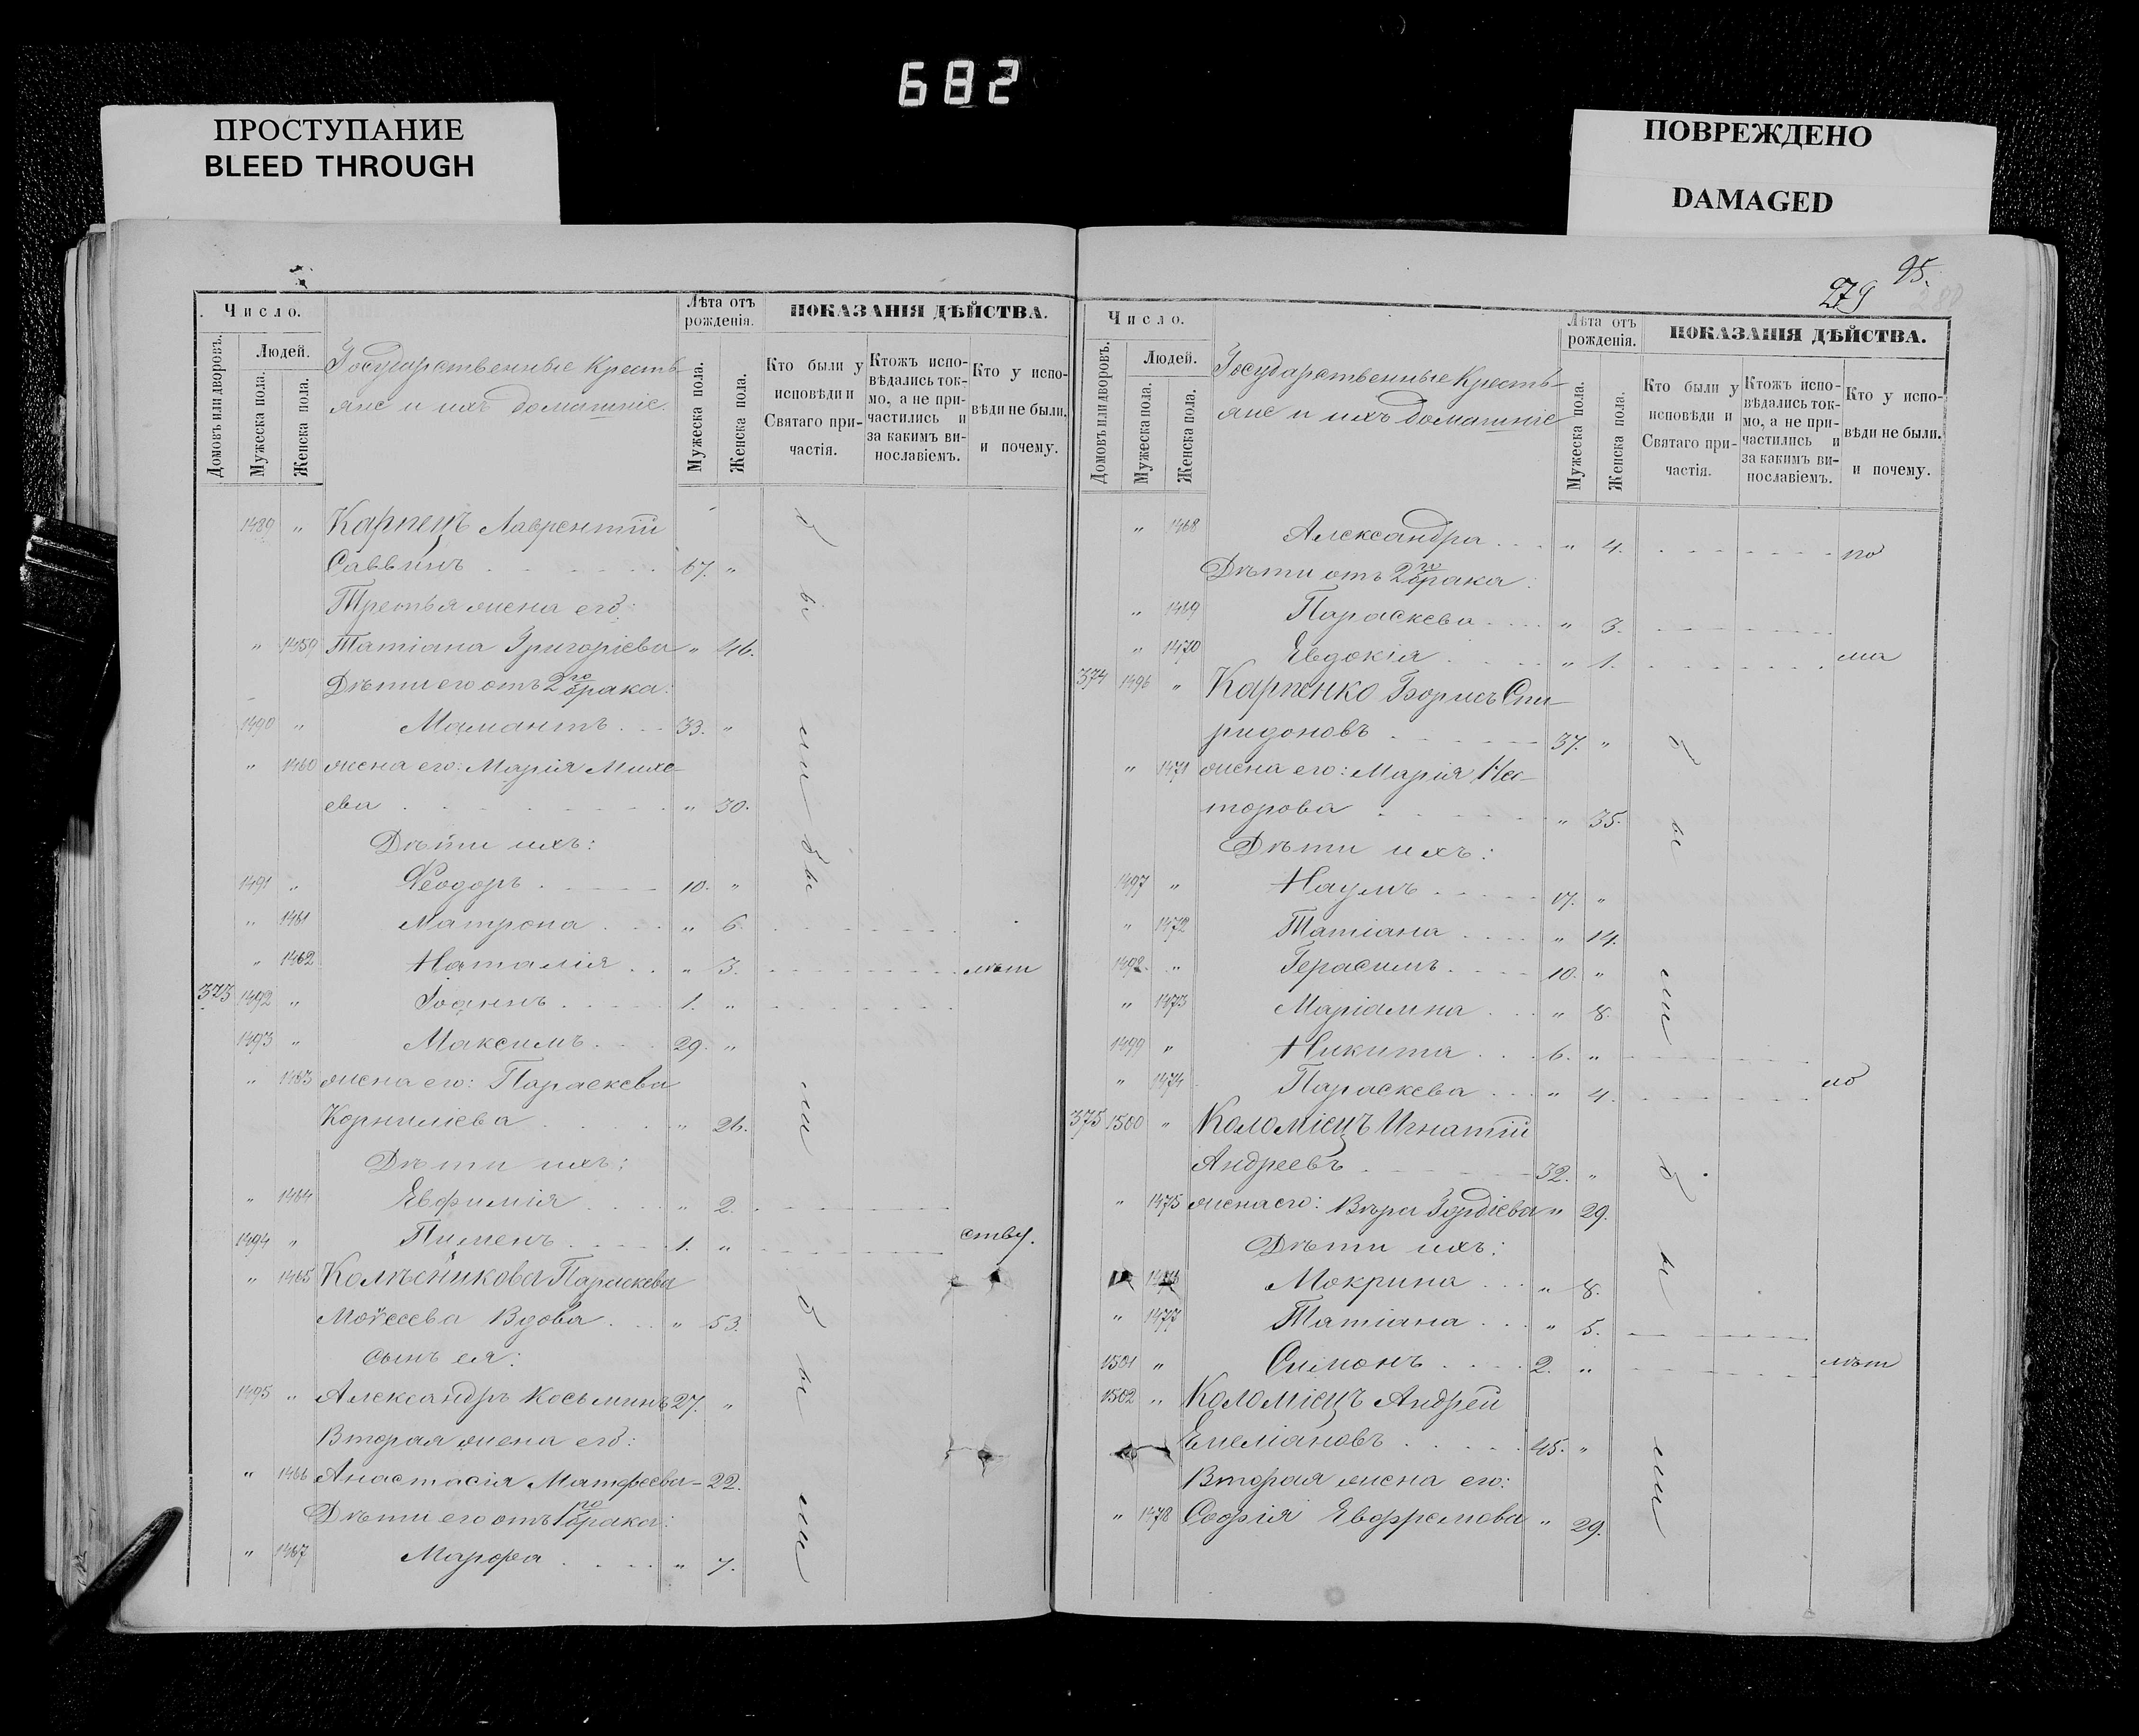 682
ПРОСТУПАНИЕ
BLEED THROUGH
ПОВРЕЖДЕНО
DAMAGED
Число.
Домовъ или дворовъ.
Людей.
Мужеска пола.
Женска пола.
Государственные Кресть-
яне и ихъ домашніе.
Лѣта отъ рожденія.
Мужеска пола.
Женска пола.
ПОКАЗАНІЯ ДѢЙСТВА.
Кто были у исповѣди и Святаго причастія.
Ктожъ исповѣдались токмо, а не причастились и за какимъ винославіемъ.
Кто у исповѣди не были, и почему.
1489 „ Карпецъ Лаврентій
Саввинъ 67. „
Третья жена его:
„ 1459 Татіана Григоріева „ 46.
Дѣти его отъ 2го брака:
1490 „ Мамантъ 33. „
„ 1460 жена его: Марія Михе-
ева „ 30.
Дѣти ихъ:
1491 „ Ѳеодоръ 10. „
„ 1461 Матрона „ 6.
„ 1462 Наталія „ 3. лѣт
373 1492 „ Іоаннъ 1. „
1493 „ Максимъ 29. „
„ 1463 жена его: Параскева
Корниліева „ 26.
Дѣти ихъ:
„ 1464 Евфимія „ 2.
1494 „ Пименъ 1. „ ству.
„ 1465 Колѣсникова Параскева
Моѵсеева Вдова „ 53.
Сынъ ея:
1495 „ Александръ Косьминъ 27. „
Вторая жена его:
„ 1466 Анастасія Матфеева - 22.
Дѣти его отъ 1го брака:
„ 1467 Марфа „ 7.
бы
ли
бы
ли
бы
ли
95.
279
Число.
Домовъ или дворовъ.
Людей.
Мужеска пола.
Женска пола.
Государственные Кресть-
яне и ихъ домашніе
Лѣта отъ рожденія.
Мужеска пола.
Женска пола.
ПОКАЗАНІЯ ДѢЙСТВА.
Кто были у исповѣди и Святаго причастія.
Ктожъ исповѣдались токмо, а не причастились и за какимъ винославіемъ.
Кто у исповѣди не были, и почему.
„ 1468 Александра „ 4. по
Дѣти отъ 2го брака:
„ 1469 Параскева „ 3.
„ 1470 Евдокія „ 1. ма
374 1496 „ Карпенко Борисъ Спи-
ридоновъ 37. „
„ 1471 жена его: Марія Нес-
торова „ 35.
Дѣти ихъ:
1497 „ Наумъ 17. „
„ 1472 Татіана „ 14.
1498 „ Герасимъ 10. „
„ 1473 Маріамна „ 8.
1499 „ Никита 6. „
„ 1474 Параскева „ 4. ло
375 1500 „ Коломіецъ Игнатій
Андреевъ 32. „
„ 1475 жена его: Вѣра Гордіева „ 29.
Дѣти ихъ:
1476 Мокрина „ 8.
„ 1477 Татіана „ 5.
1501 „ Симонъ 2. „ лѣт
1502 „ Коломіецъ Андрей
Емеліановъ 45. „
Вторая жена его:
„ 1478 Софія Евфремова „ 29.
бы
ли
бы
ли